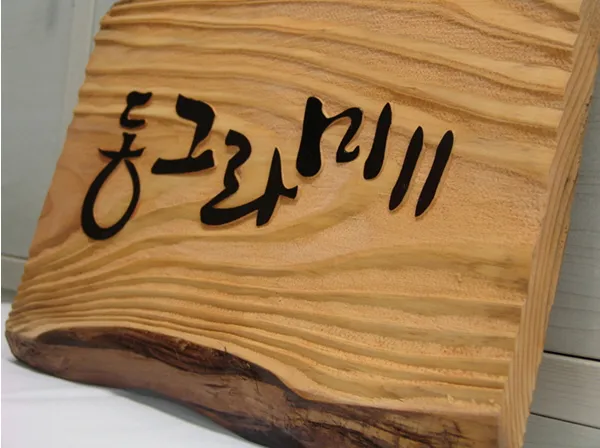 동그라미